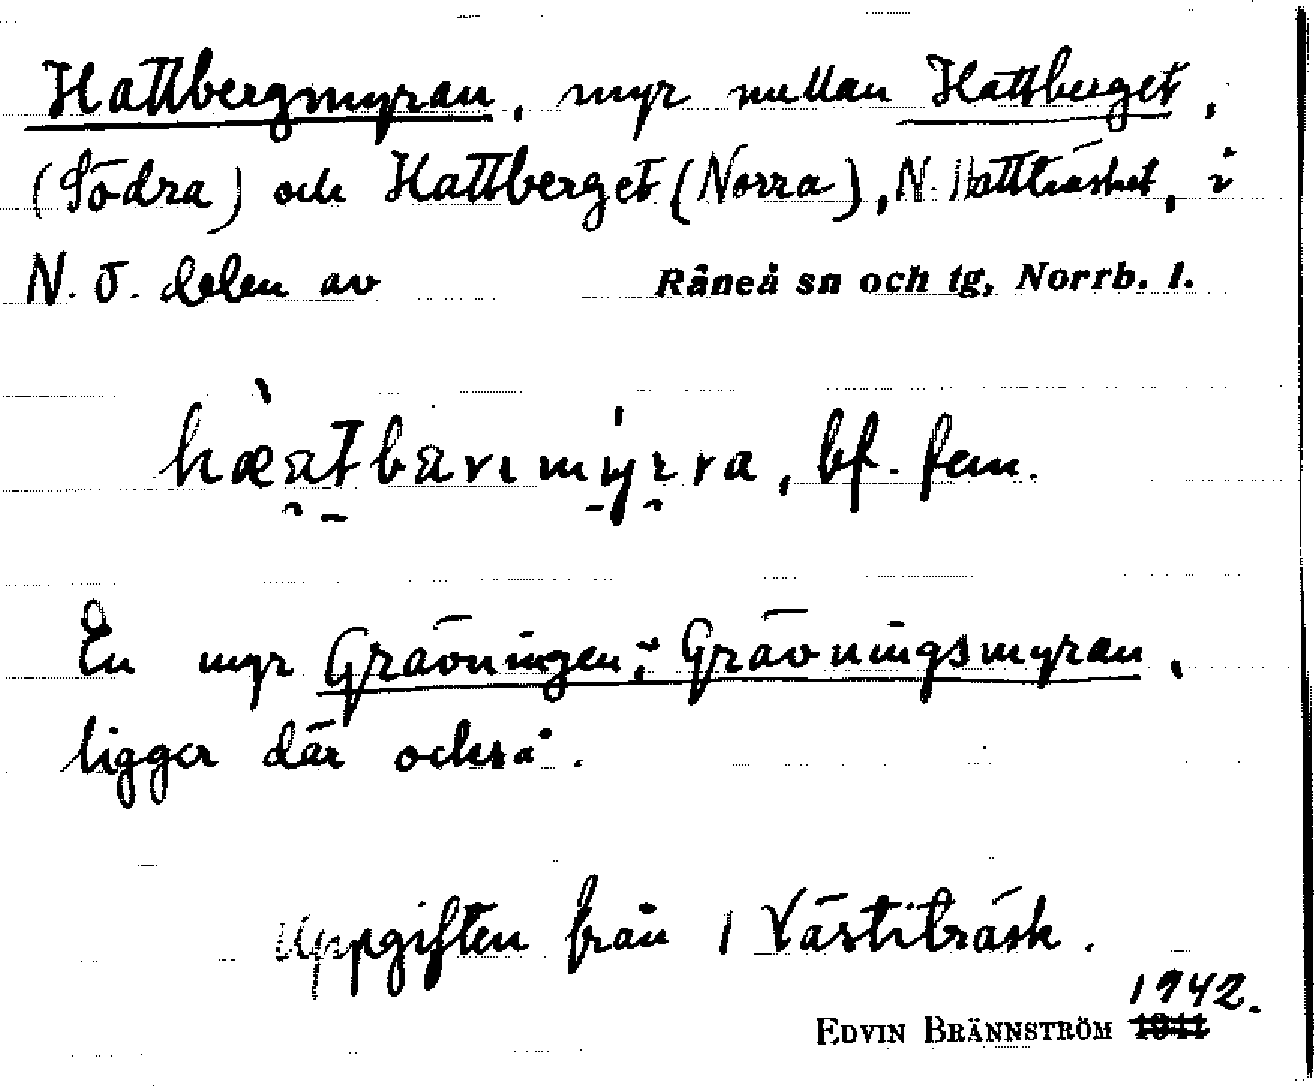 Hattbergmyran, myr mellan Hattberget,
(Södra) och Hattberget (Norra), N. Hattträsket, i
N. Ö. delen av Råneå sn och tg, Norrb. l.
bf. fem.
En myr Grävningen, Grävningsmyran,
ligger där också.
Uppgiften från 1 Västiträsk.
1942.
EDVIN BRÄNNSTRÖM 1941